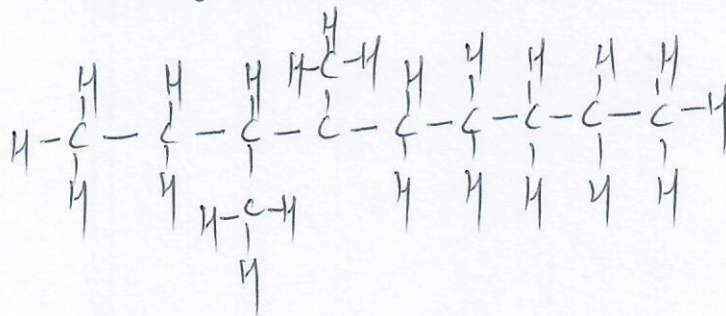 H
H-C-H
H H H H H H H H
H-C-C-C-C-C-C-C-C-C-H
H H H H H H H
H-C-H
H